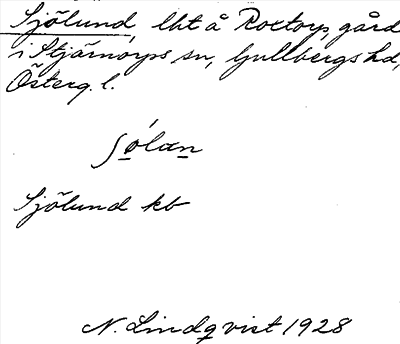 Sjölund, lht å Roxtorps gård
i Stjärnorps sn, Gullbergs hd,
Österg. l.
Sjölund kb
N. Lindqvist 1928